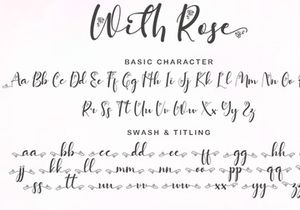 With Rose
BASIC CHARACTER
Aa Bb Cc Dd Ee Ff Gg Hh Ii Jj Kk Ll Mm Nn Oo
Rr Ss Tt Uu Vv Ww Xx Yy Zz
SWASH & TITLING
aa bb cc dd ee ff gg hh
jj kk ll mm nn oo pp qq
ss tt uu vv ww xx yy